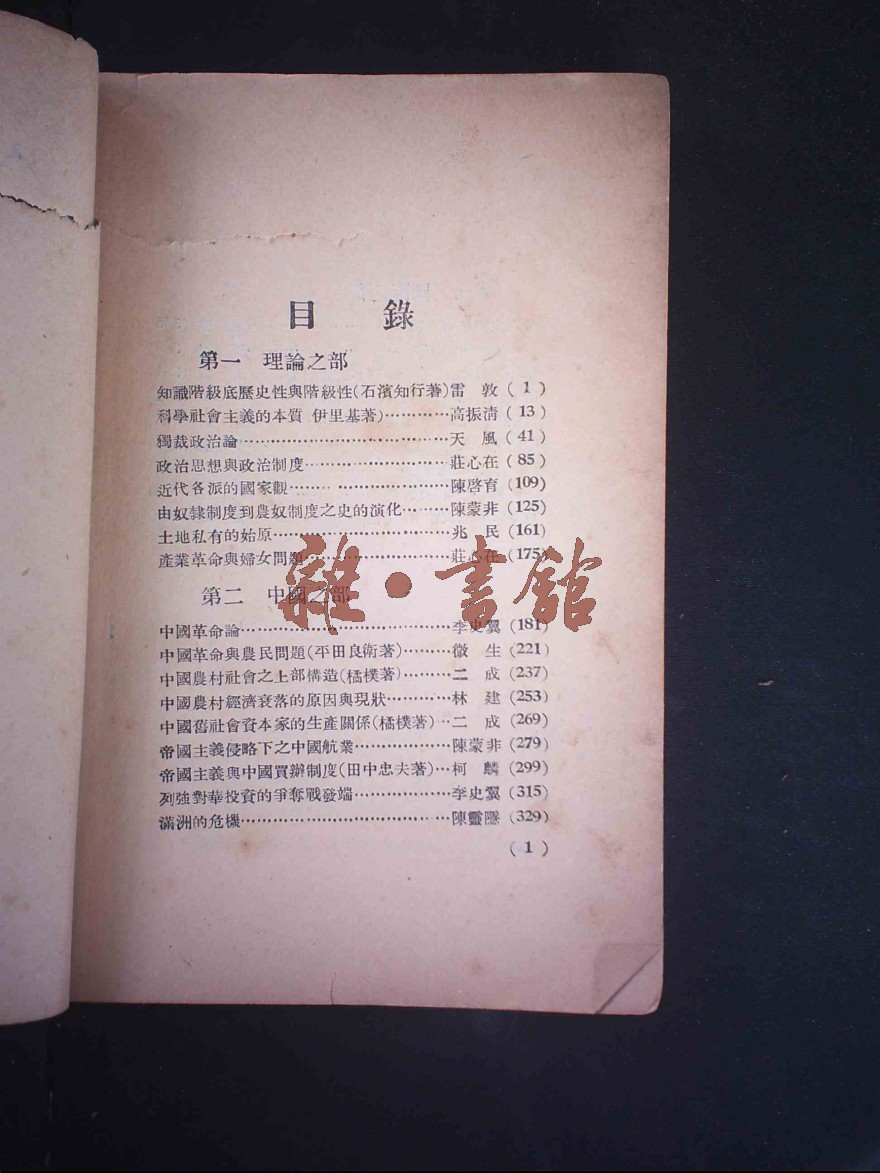 目錄
第一 理論之部
知識階級底歷史性與階級性(石濱知行著)雷敦(1)
科學社會主義的本質 伊里基著)…………高振清(13)
獨裁政治論…………………………………天風(41)
政治思想與政治制度………………………莊心在(85)
近代各派的國家觀…………………………陳啓育(109)
由奴隸制度到農奴制度之史的演化………陳蒙非(125)
土地私有的始原……………………………兆民(161)
產業革命與婦女問題………………………莊心在(175)
第二 中國之部
中國革命論…………………………………李史翼(181)
中國革命與農民問題(平田良衛著)………微生(221)
中國農村社會之上部構造(橘樸著)………二成(237)
中國農村經濟衰落的原因與現狀…………林建(253)
中國舊社會資本家的生產關係(橘樸著)…二成(269)
帝國主義侵略下之中國航業………………陳蒙非(279)
帝國主義與中國買辦制度(田中忠夫著)…柯麟(299)
列強對華投資的爭奪戰發端………………李史翼(315)
滿洲的危機…………………………………陳靈(329)
(1)
雜·書館